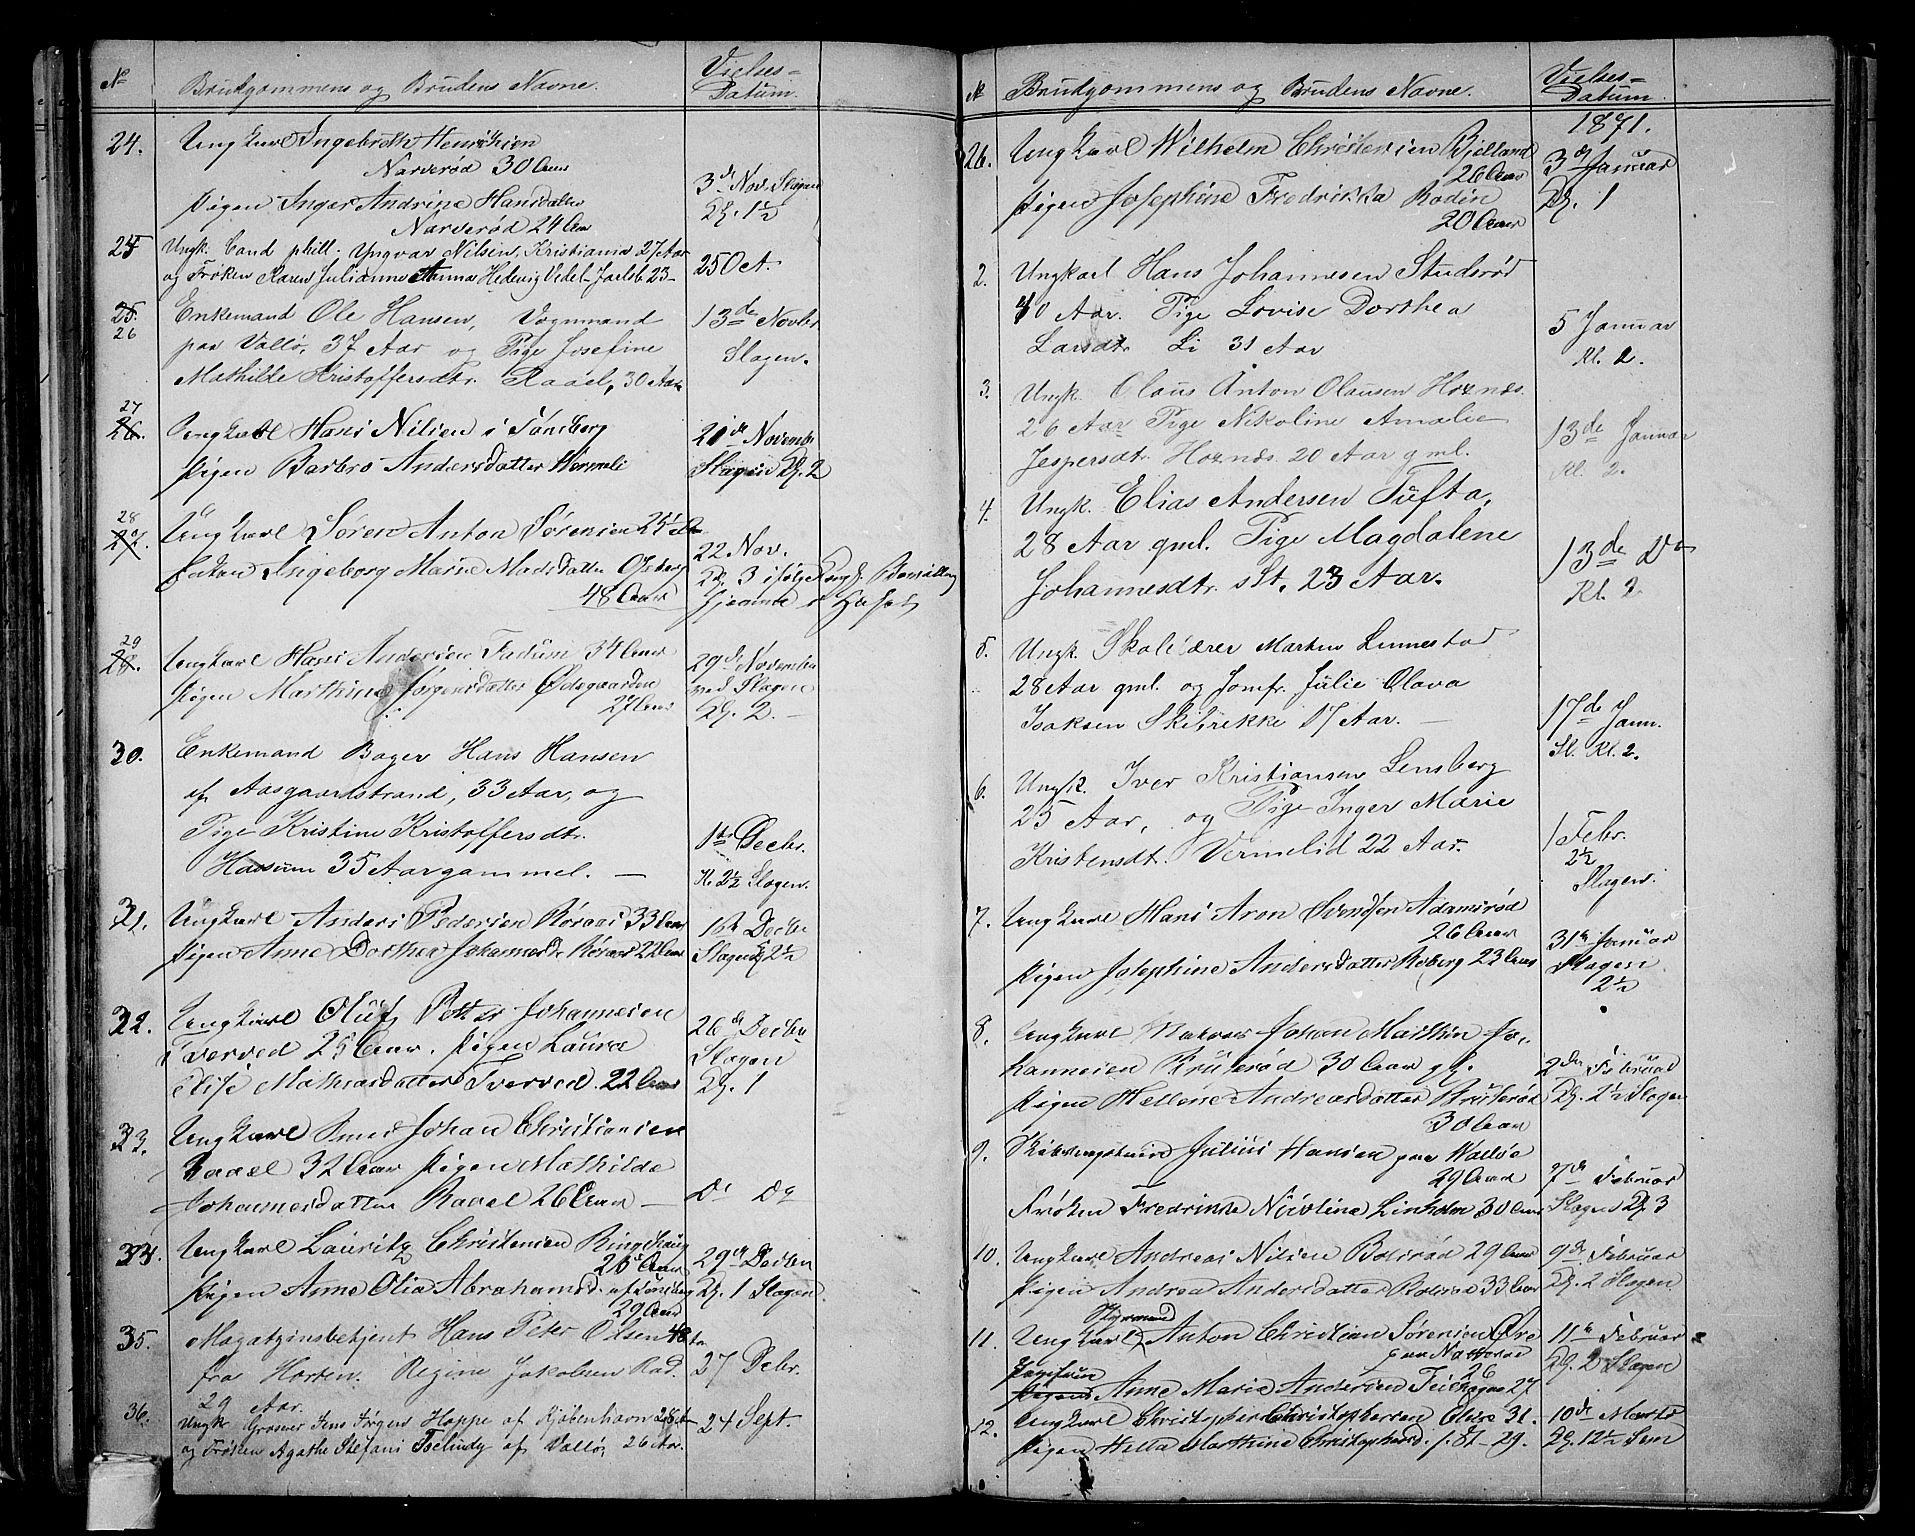 No
Brudgommens og Brudens Navne.
Vielses=
Datum.
24.
Ungkarl Ingebreth Henrichsen
Narverød 30 Aar
Pigen Inger Andrine Hansdatter
Narverød 24 Aar
3d Nov. Slagen
Kl. 1½
25
Ungk. Cand phill. Yngvar Nilsen, Kristiania 27 Aar
og Frøken Karen Julianne Anna Hedevig Vedel-Jarlsb. 23-
25 Oct.
25.
26
Enkemand Ole Hansen, Vognmand
paa Valløe, 37 Aar og Pige Josefine
Mathilde Kristoffersdtr. Raael, 30 Aar
13de Novbr
Slagen.
27
26.
Ungkarl Hans Nilsen i Tønsberg
Pigen Barbro Andersdatter Vermeli
20de Novembr
Slagen Kl. 2
28
27.
Ungkarl Søren Anton Sørensen 25½ Aar
Enken Ingeborg Marie Madsdatter Olsberg
48 Aar
22 Nov.
Kl. 3 ifølge Kongl. Bevilling
hjemme i Huset
29
28.
Ungkarl Hans Andersen Fadum 34 Aar
Pigen Marthine Jørgensdatter Ødegaarden
27 Aar
29de Novembr
ved Slagen
Kl. 2.
30.
Enkemand Bager Hans Hansen
af Aasgaardstrand, 33 Aar, og
Pige Kristine Kristoffersdtr.
Hassum 35 Aar gammel. —
1ste Decbr.
Kl. 2½ Slagen.
31.
Ungkarl Anders Pedersen Røraas 33 Aar
Pigen Anne Dorthea Johannesd. Røraas 22 Aar
16de Decbr
Slagen Kl. 2½
32.
Ungkarl Oluf Petter Johannesen
Tverved 25 Aar. Pigen Laura
Elise Mathiasdatter Tverved 22 Aar
26de Decbr
Slagen
Kl. 1
33.
Ungkarl Smed Johan Christiansen
Raael 32 Aar Pigen Mathilde
Johannesdatter Raael 26 Aar —
Do Do
34.
Ungkarl Lauritz Christensen Ringshaug
26 Aar
Pigen Anne Olia Abrahamsd. af Tønsberg
29 Aar
29de Decbr
Kl. 1 Slagen
35.
Magatzinsbetjent Hans Peter Olsen 48
fra Horten. Regine Jakobsen Rød.
29 Aar.
27 Febr.
36.
Ungk. Grosser Jens Jørgen Hoppe af Kjøbenhavn 28 A
og Frøken Agathe Stefani Tseludy af Vallø, 26 Aar.
24 Sept.
No
Brudgommens og Brudens Navne.
Vielses=
Datum.
1871.
26.
Ungkarl Wilhelm Christensen Bjelland
26 Aar
Pigen Josephine Fredrikka Bodin
20 Aar
3de Januar
Kl. 1
2.
Ungkarl Hans Johannesen Studsrød
40 Aar. Pige Lovise Dorthea
Larsdtr. Li 31 Aar
5 Januar
Kl. 2.
3.
Ungk. Olaus Anton Olausen Hoznæs
26 Aar Pige Nikoline Amalie
Jespersdtr. Hoznæs. 20 Aar gml.
13de Januar
Kl. 2.
4.
Ungk. Elias Andersen Tufta,
28 Aar gml. Pige Magdalene
Johannesdtr. sSt. 23 Aar.
13de Do
Kl. 2
5.
Ungk. Skolelærer Martin Linnestad
28 Aar gml. og Jomfr. Julie Olava
Isaksen Skibrekke 17 Aar. —
17de Jann.
Sl. Kl. 2.
6.
Ungk. Iver Kristiansen Lensberg
25 Aar, og Pige Inger Marie
Kristensdt. Vermelid 22 Aar.
1 Febr.
2½
Slagen.
7.
Ungkarl Hans Aron Svendsen Adamsrød
26 Aar
Pigen Josephine Andersdatter Roberg 23 Aar
31te Januar
Slagen
2½
8.
Ungkarl Johan Marthin Jo-
hannesen Brusterød 30 Aar gl.
Pigen Hellene Andreasdatter Brusterød
30 Aar
2den Februar
Kl. 2½ Slagen
9.
Julius Hansen paa Valløe
29 Aar
Frøken Fredrikke Nicoline Linholm 30 Aar
7de Februar
Slagen Kl. 3
10.
Ungkarl Andreas Nilsen Bolsrød 29 Aar
Pigen Andrea Andersdatter 33 Aar
9de Februar
Kl. 2 Slagen
11.
Styrmand
Ungkarl Anton Christian Sørensen Øre
paa Nøtterøe
26
Jomfrue
Pigen Anne Marie Andersen Teiehøgda 27
11te Februar
Kl. 2 Slagen
12.
Ungkarl Christopher Christophersen 31.
Pigen Hella Marthine Christophersd. f. 81 - 29.
10de Marts
Kl. 12½ Sem